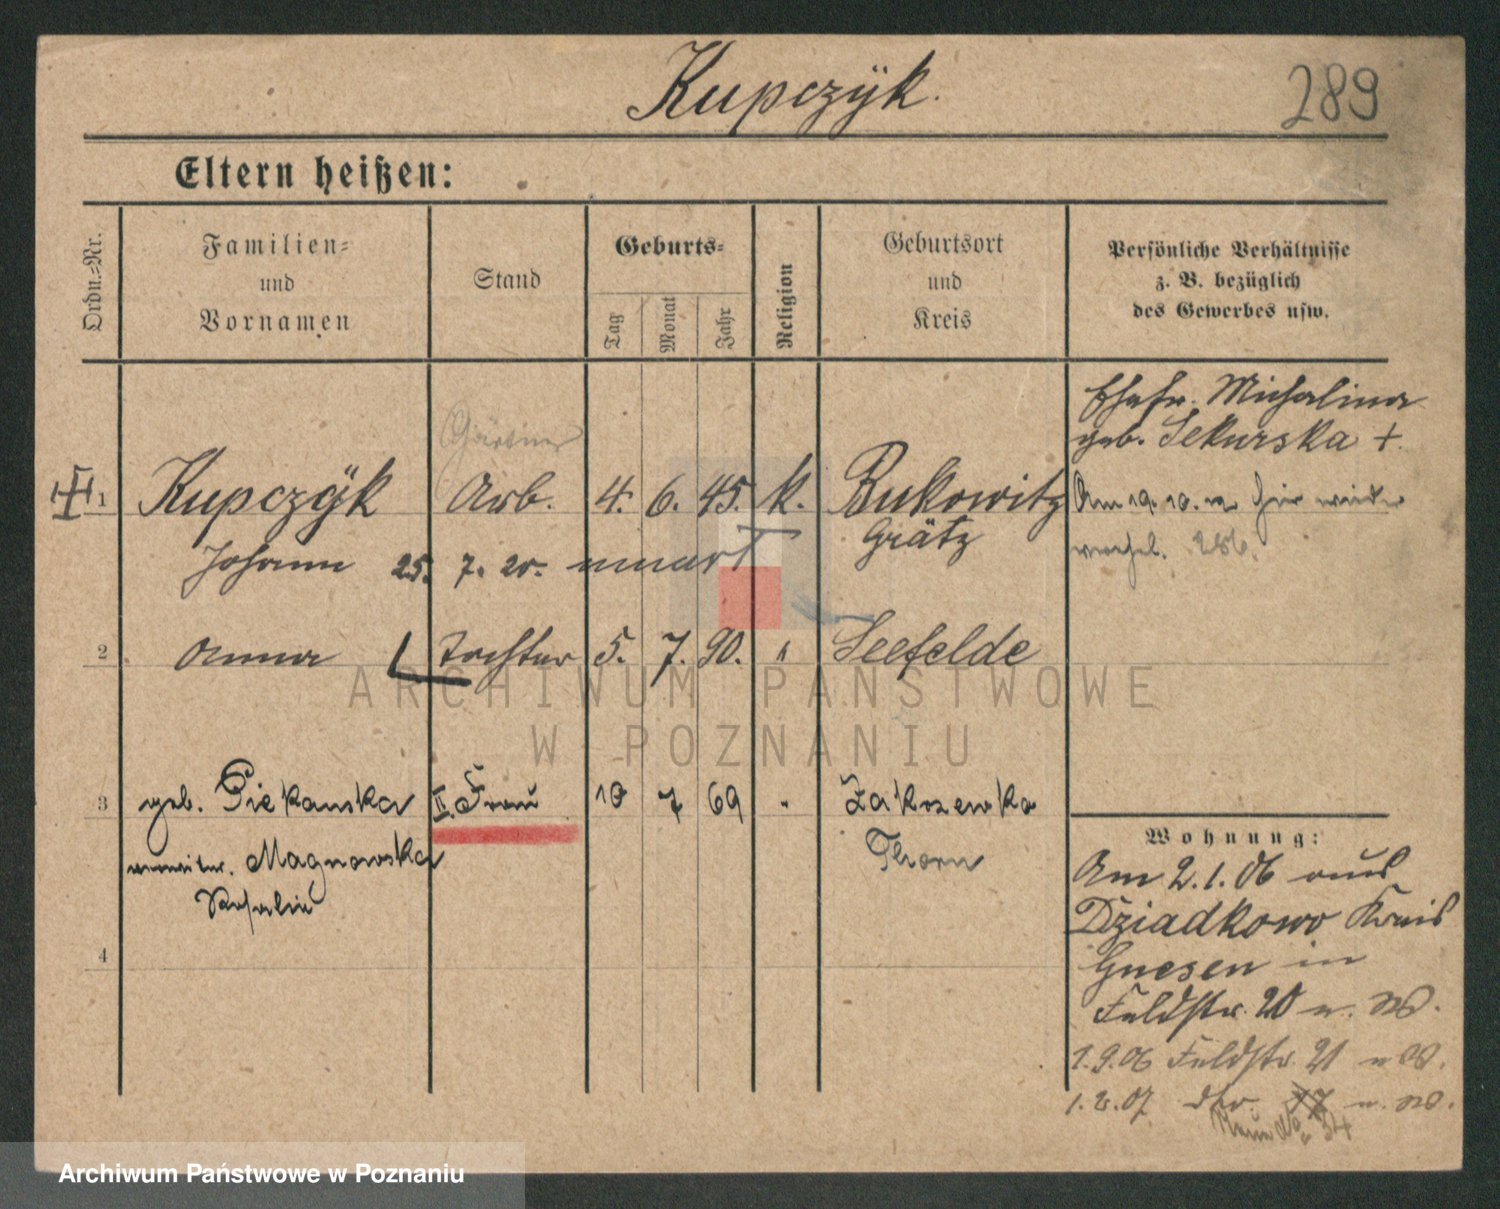 Kupczÿk.
289
Eltern heißen:
Ordn.=Nr.
Familien=
und
Vornamen
Stand
Geburts=
Tag
Monat
Jahr
Religion
Geburtsort
und
Kreis
Persönliche Verhältnisse
z. B. bezüglich
des Gewerbes usw.
Ehefr. Michalina
geb. Sekurska +.
Gärtner
1 Kupczÿk Arb. 4. 6. 45. k. Bukowitz
Grätz
Johann 25. 7. 20.
Am 19. 10. hier wieder
2 Anna Tochter 5. 7. 90. " Seefelde
3 geb. Piekanska II. Frau 10 7 69 " Zakrzewko
Thorn
verwitw. Magnowska
Rosalie
4
Wohnung:
Am 2.1.06 aus
Dziadkowo Kreis
Gnesen in
Feldstr. 20 u. W.
1.9.06 Feldstr. 21 u W.
1.2.07 dto. 17 u. W.
34
ARCHIWUM PAŃSTWOWE
W POZNANIU
Archiwum Państwowe w Poznaniu